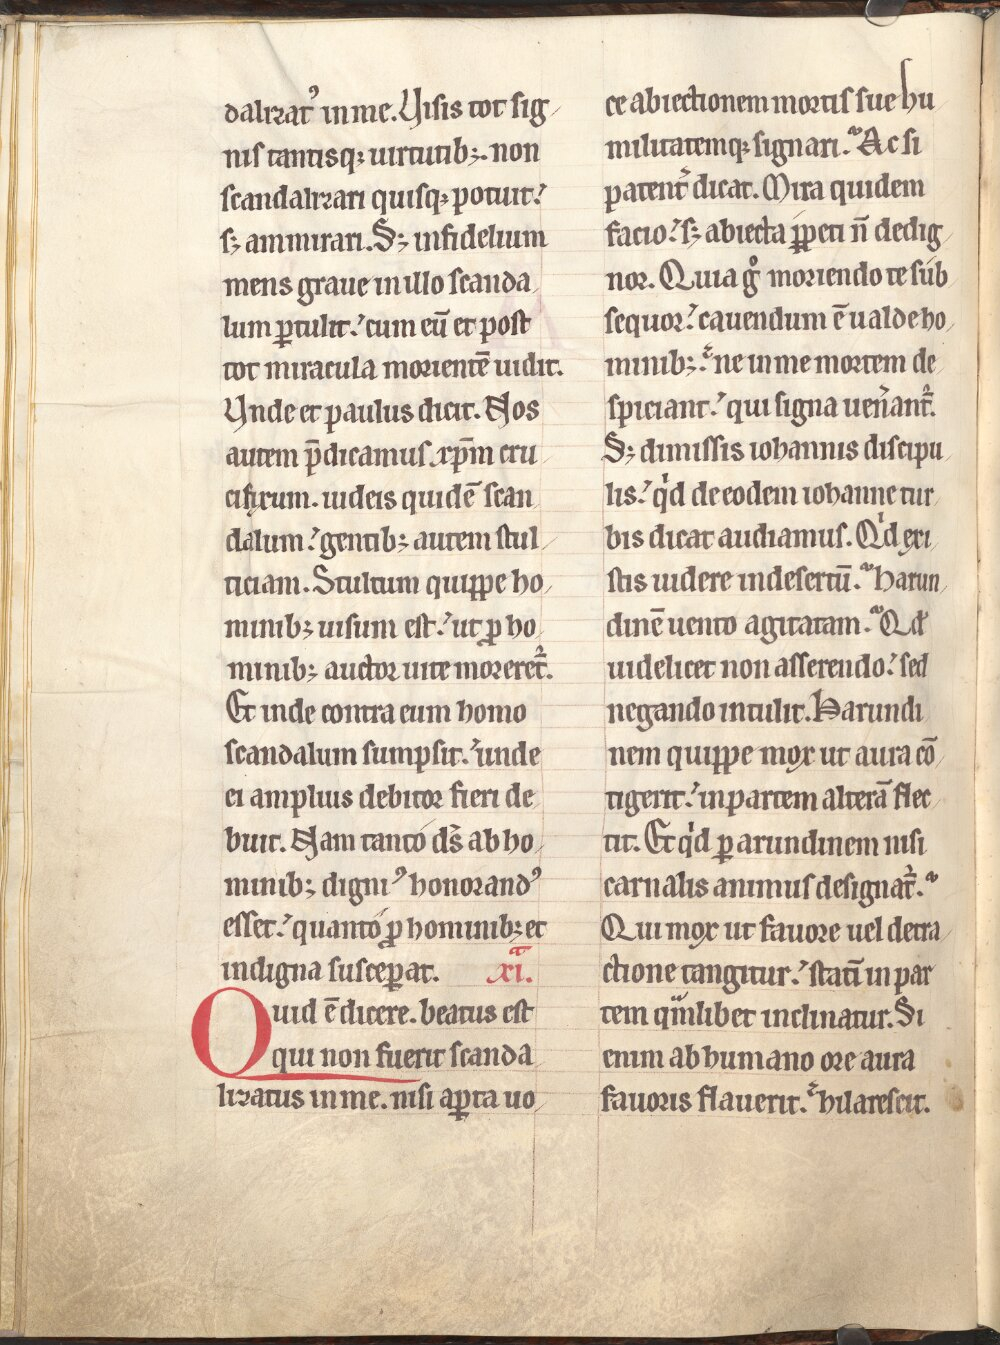 dalizatꝰ in me. Uisis tot sig
nis tantisqꝫ uirtutibꝫ. non
scandalizari quisqꝫ potuit?
sꝫ ammirari. Sꝫ infidelium
mens graue in illo scanda
lum ꝑtulit? cum eū et post
tot miracula morientē uidit.
Unde et paulus dicit. Nos
autem p̄dicamus xp̄m cru
cifixum. iudeis quidē scan
dalum? gentibꝫ autem stul
ticiam. Stultum quippe ho
minibꝫ uisum est? ut ꝓ ho
minibꝫ auctor uite moreret᷑.
Et inde contra eum homo
scandalum sumpsit? unde
ei amplius debitor fieri de
buit. Nam tanto ds̄ ab ho
minibꝫ digniꝰ honorandꝰ
esset? quanto ꝓ hominibꝫ et
indigna susceꝑat. xi.
Quid ē dicere. beatus est
qui non fuerit scanda
lizatus in me. nisi aꝑta uo
ce abiectionem mortis sue hu
militatemqꝫ signari. Ac si
patent᷑ dicat. Mira quidem
facio? sꝫ abiecta ꝑpeti n̄ dedig
nor. Quia gͦ moriendo te sub
sequor? cauendum ē ualde ho
minibꝫ? ne in me mortem de
spiciant? qui signa uen̄ant᷑.
Sꝫ dimissis iohannis discipu
lis? qͥd de eodem iohanne tur
bis dicat audiamus. Qͥd exi
stis uidere in desertū. harun
dinē uento agitatam. Qd̓
uidelicet non asserendo? sed
negando intulit. Harundi
nem quippe mox ut aura cō
tigerit? in partem alterā flec
tit. Et qͥd ꝑ arundinem nisi
carnalis animus designat᷑.
Qui mox ut fauore uel detra
ctione tangitur? statī in par
tem qᵃmlibet inclinatur. Si
enim ab humano ore aura
fauoris flauerit. hilarescit.